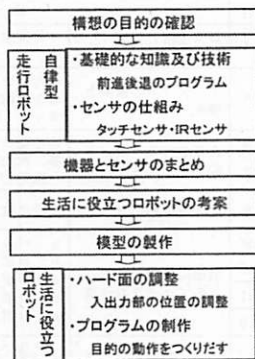 構想の目的の確認
自律型
走行ロボット
・基礎的な知識及び技術
前進後退のプログラム
・センサの仕組み
タッチセンサ・IRセンサ
機器とセンサのまとめ
生活に役立つロボットの考案
模型の製作
生活に役立つ
ロボット
・ハード面の調整
入出力部の位置の調整
・プログラムの制作
目的の動作をつくりだす